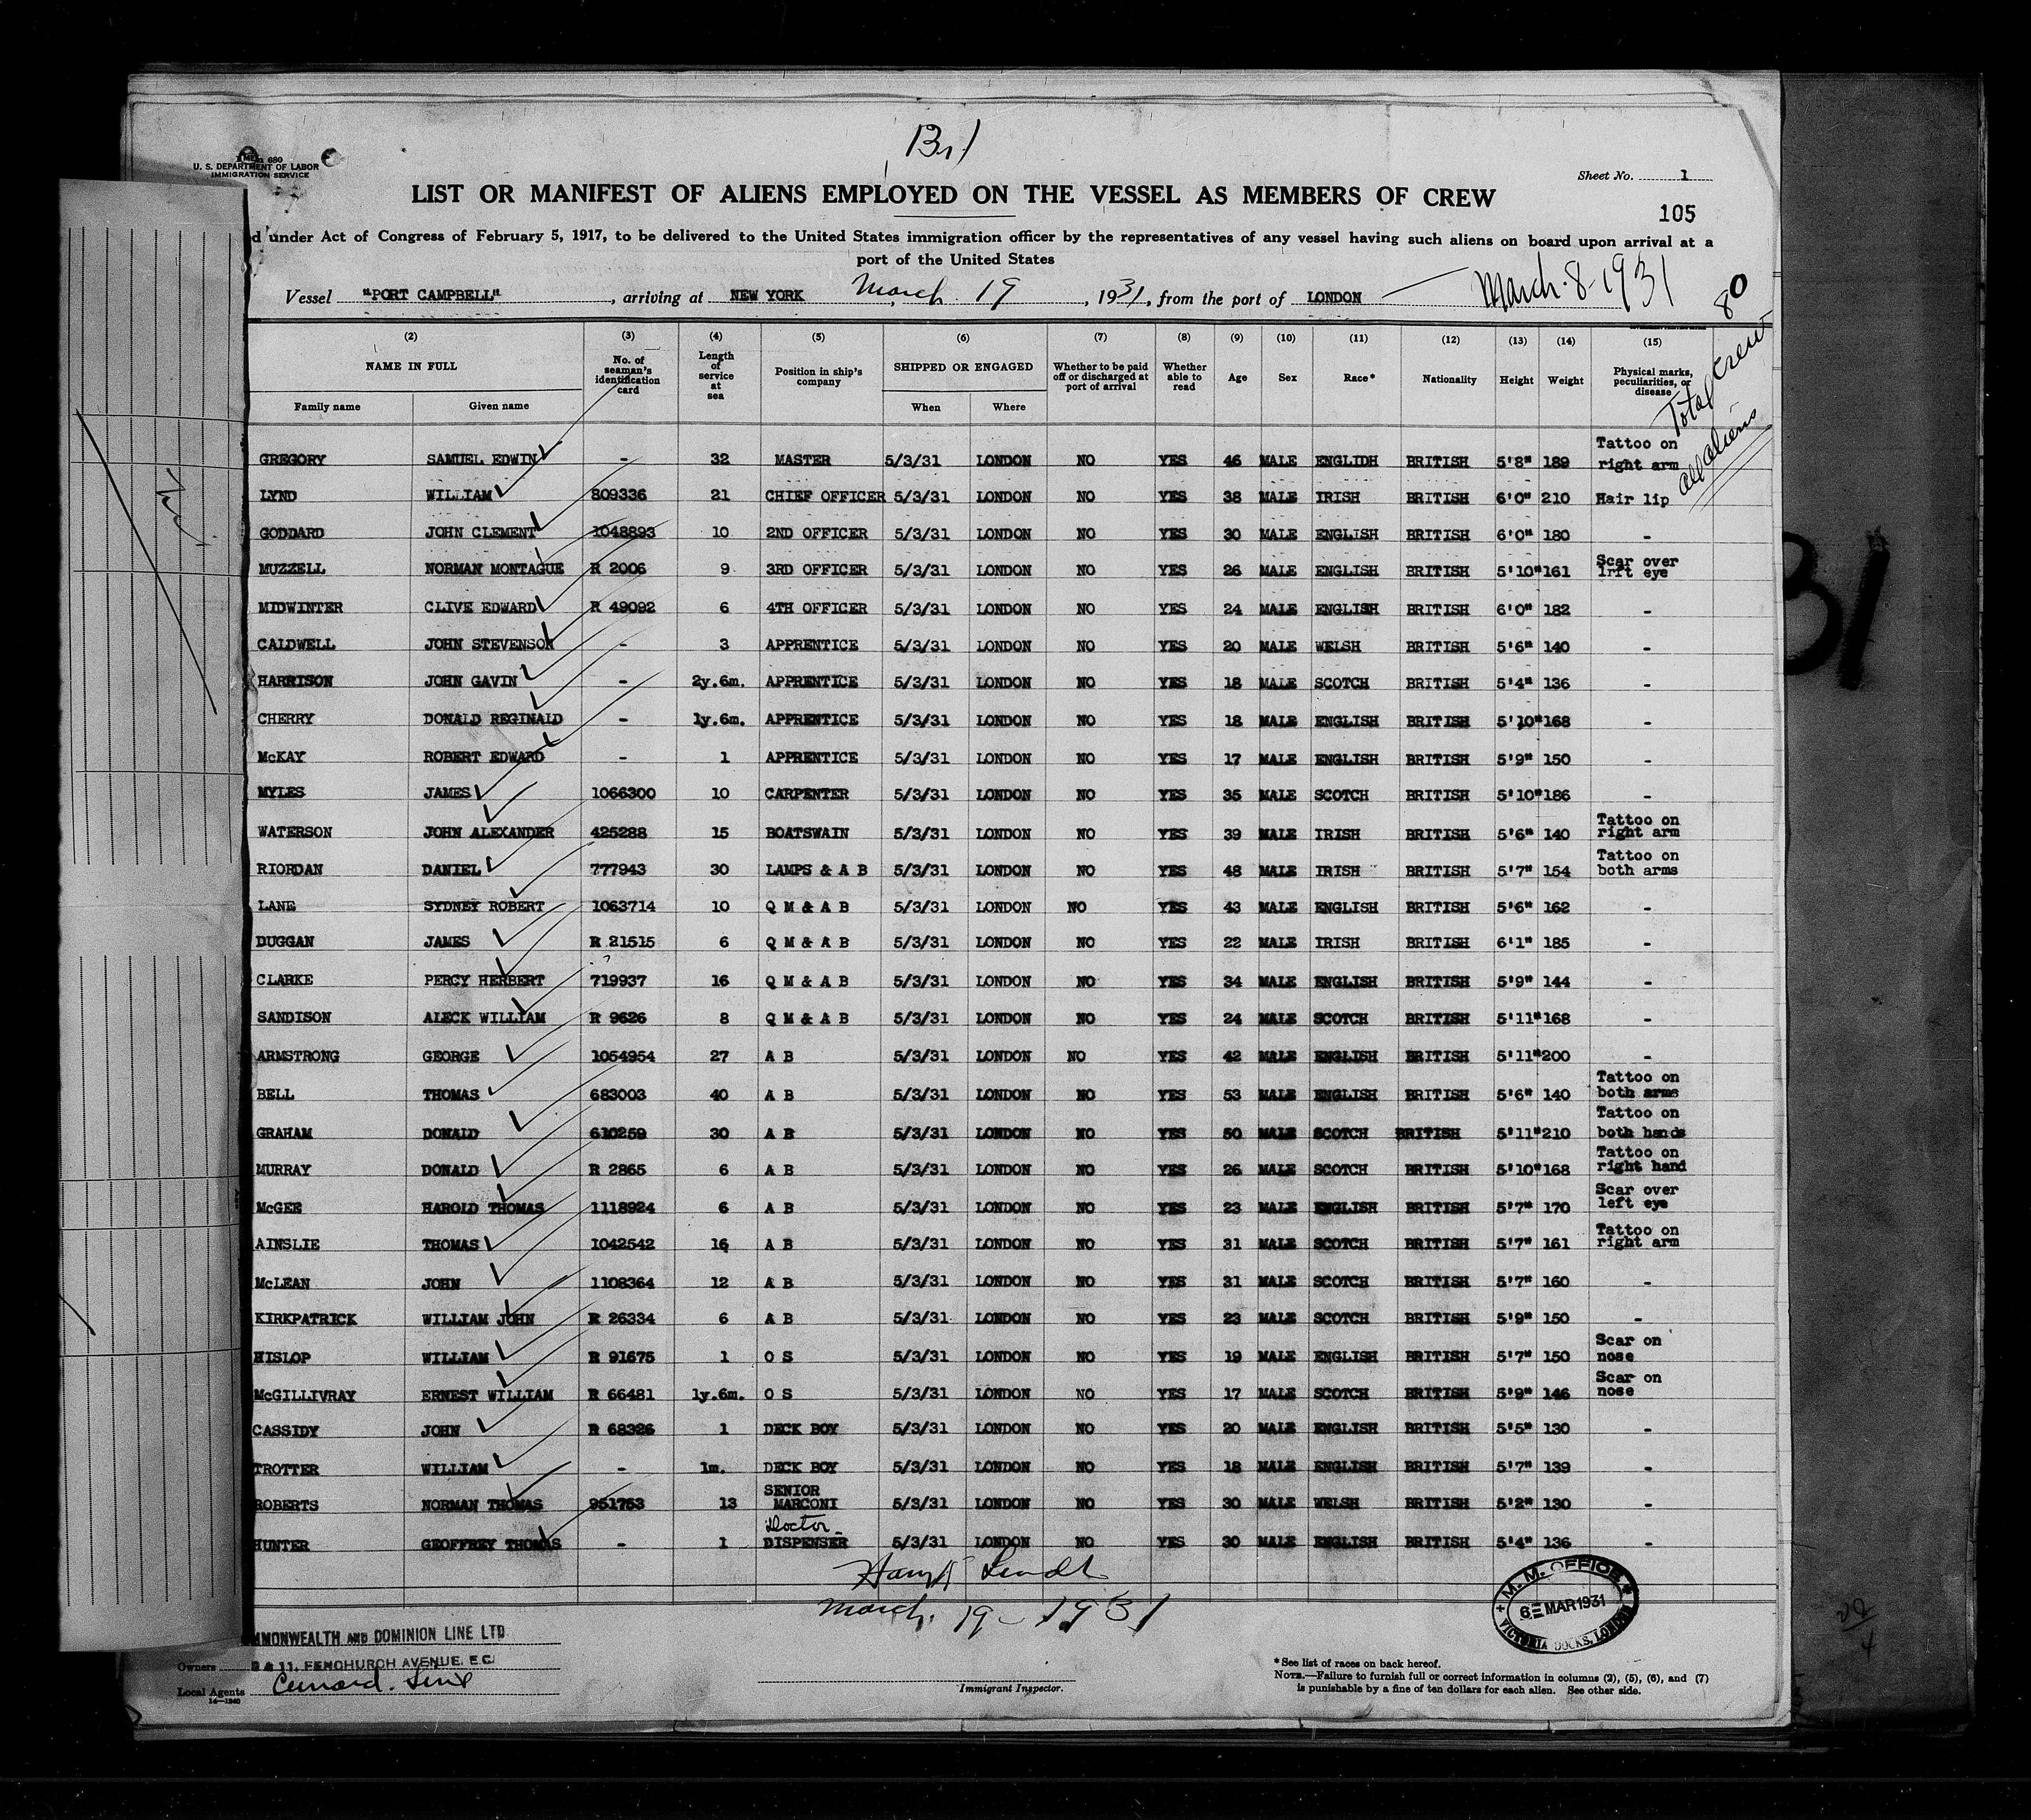 Br1
Form 680
U. S. DEPARTMENT OF LABOR
IMMIGRATION SERVICE
Sheet No. 1
LIST OR MANIFEST OF ALIENS EMPLOYED ON THE VESSEL AS MEMBERS OF CREW
105
d under Act of Congress of February 5, 1917, to be delivered to the United States immigration officer by the representatives of any vessel having such aliens on board upon arrival at a
port of the United States
Vessel "PORT CAMPBELL", arriving at NEW YORK March 19, 1931, from the port of LONDON — March. 8-1931
80
Total crew
all aliens
(2) (3) (4) (5) (6) (7) (8) (9) (10) (11) (12) (13) (14) (15)
NAME IN FULL No. of seaman's identification card Length of service at sea Position in ship's company SHIPPED OR ENGAGED Whether to be paid off or discharged at port of arrival Whether able to read Age Sex Race* Nationality Height Weight Physical marks, peculiarities, or disease
Family name Given name When Where
GREGORY SAMUEL EDWIN - 32 MASTER 5/3/31 LONDON NO YES 46 MALE ENGLIDH BRITISH 5'8" 189 Tattoo on right arm
LYND WILLIAM 809336 21 CHIEF OFFICER 5/3/31 LONDON NO YES 38 MALE IRISH BRITISH 6'0" 210 Hair lip
GODDARD JOHN CLEMENT 1048893 10 2ND OFFICER 5/3/31 LONDON NO YES 30 MALE ENGLISH BRITISH 6'0" 180 -
MUZZELL NORMAN MONTAGUE R 2006 9 3RD OFFICER 5/3/31 LONDON NO YES 26 MALE ENGLISH BRITISH 5'10" 161 Scar over lrft eye
MIDWINTER CLIVE EDWARD R 49092 6 4TH OFFICER 5/3/31 LONDON NO YES 24 MALE ENGLISH BRITISH 6'0" 182 -
CALDWELL JOHN STEVENSON - 3 APPRENTICE 5/3/31 LONDON NO YES 20 MALE WELSH BRITISH 5'6" 140 -
HARRISON JOHN GAVIN - 2y.6m. APPRENTICE 5/3/31 LONDON NO YES 18 MALE SCOTCH BRITISH 5'4" 136 -
CHERRY DONALD REGINALD - 1y.6m. APPRENTICE 5/3/31 LONDON NO YES 18 MALE ENGLISH BRITISH 5'10" 168 -
McKAY ROBERT EDWARD - 1 APPRENTICE 5/3/31 LONDON NO YES 17 MALE ENGLISH BRITISH 5'9" 150 -
MYLES JAMES 1066300 10 CARPENTER 5/3/31 LONDON NO YES 35 MALE SCOTCH BRITISH 5'10" 186 -
WATERSON JOHN ALEXANDER 425288 15 BOATSWAIN 5/3/31 LONDON NO YES 39 MALE IRISH BRITISH 5'6" 140 Tattoo on right arm
RIORDAN DANIEL 777943 30 LAMPS & A B 5/3/31 LONDON NO YES 48 MALE IRISH BRITISH 5'7" 154 Tattoo on both arms
LANE SYDNEY ROBERT 1063714 10 Q M & A B 5/3/31 LONDON NO YES 43 MALE ENGLISH BRITISH 5'6" 162 -
DUGGAN JAMES R 21515 6 Q M & A B 5/3/31 LONDON NO YES 22 MALE IRISH BRITISH 6'1" 185 -
CLARKE PERCY HERBERT 719937 16 Q M & A B 5/3/31 LONDON NO YES 34 MALE ENGLISH BRITISH 5'9" 144 -
SANDISON ALECK WILLIAM R 9626 8 Q M & A B 5/3/31 LONDON NO YES 24 MALE SCOTCH BRITISH 5'11" 168 -
ARMSTRONG GEORGE 1054954 27 A B 5/3/31 LONDON NO YES 42 MALE ENGLISH BRITISH 5'11" 200 -
BELL THOMAS 683003 40 A B 5/3/31 LONDON NO YES 53 MALE ENGLISH BRITISH 5'6" 140 Tattoo on both arms
GRAHAM DONALD 610259 30 A B 5/3/31 LONDON NO YES 50 MALE SCOTCH BRITISH 5'11" 210 Tattoo on both hands
MURRAY DONALD R 2865 6 A B 5/3/31 LONDON NO YES 26 MALE SCOTCH BRITISH 5'10" 168 Tattoo on right hand
McGEE HAROLD THOMAS 1118924 6 A B 5/3/31 LONDON NO YES 23 MALE ENGLISH BRITISH 5'7" 170 Scar over left eye
AINSLIE THOMAS 1042542 16 A B 5/3/31 LONDON NO YES 31 MALE SCOTCH BRITISH 5'7" 161 Tattoo on right arm
McLEAN JOHN 1108364 12 A B 5/3/31 LONDON NO YES 31 MALE SCOTCH BRITISH 5'7" 160 -
KIRKPATRICK WILLIAM JOHN R 26334 6 A B 5/3/31 LONDON NO YES 23 MALE SCOTCH BRITISH 5'9" 150 -
HISLOP WILLIAM R 91675 1 O S 5/3/31 LONDON NO YES 19 MALE ENGLISH BRITISH 5'7" 150 Scar on nose
McGILLIVRAY ERNEST WILLIAM R 66481 1y.6m. O S 5/3/31 LONDON NO YES 17 MALE SCOTCH BRITISH 5'9" 146 Scar on nose
CASSIDY JOHN R 68326 1 DECK BOY 5/3/31 LONDON NO YES 20 MALE ENGLISH BRITISH 5'5" 130 -
TROTTER WILLIAM - 1m. DECK BOY 5/3/31 LONDON NO YES 18 MALE ENGLISH BRITISH 5'7" 139 -
ROBERTS NORMAN THOMAS 951753 13 SENIOR MARCONI 5/3/31 LONDON NO YES 30 MALE WELSH BRITISH 5'2" 130 -
HUNTER GEOFFREY THOMAS - 1 Doctor DISPENSER 5/3/31 LONDON NO YES 30 MALE ENGLISH BRITISH 5'4" 136 -
March. 19-1931
M. M. OFFICE
6 MAR 1931
VICTORIA DOCKS, LONDON
MMONWEALTH AND DOMINION LINE LTD
Owners 9 & 11, FENCHURCH AVENUE, E.C.
Local Agents Cunard. Line
14—1240
Immigrant Inspector.
* See list of races on back hereof.
NOTE.—Failure to furnish full or correct information in columns (2), (5), (6), and (7)
is punishable by a fine of ten dollars for each alien. See other side.
31